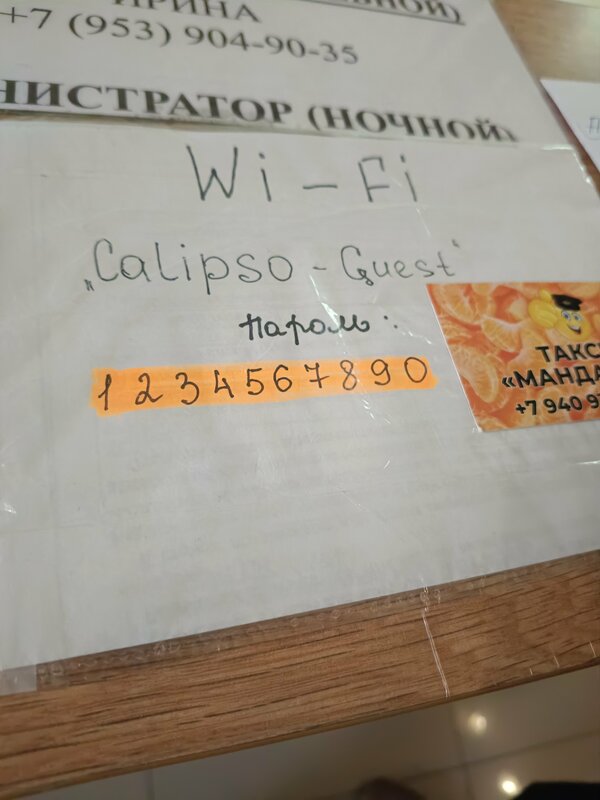 ИРИНА
+7 (953) 904-90-35
(НОЧНОЙ)
Wi-Fi
„Calipso-Guest“
Пароль:
1234567890
ТАКС
«МАНДА
+7 940 9